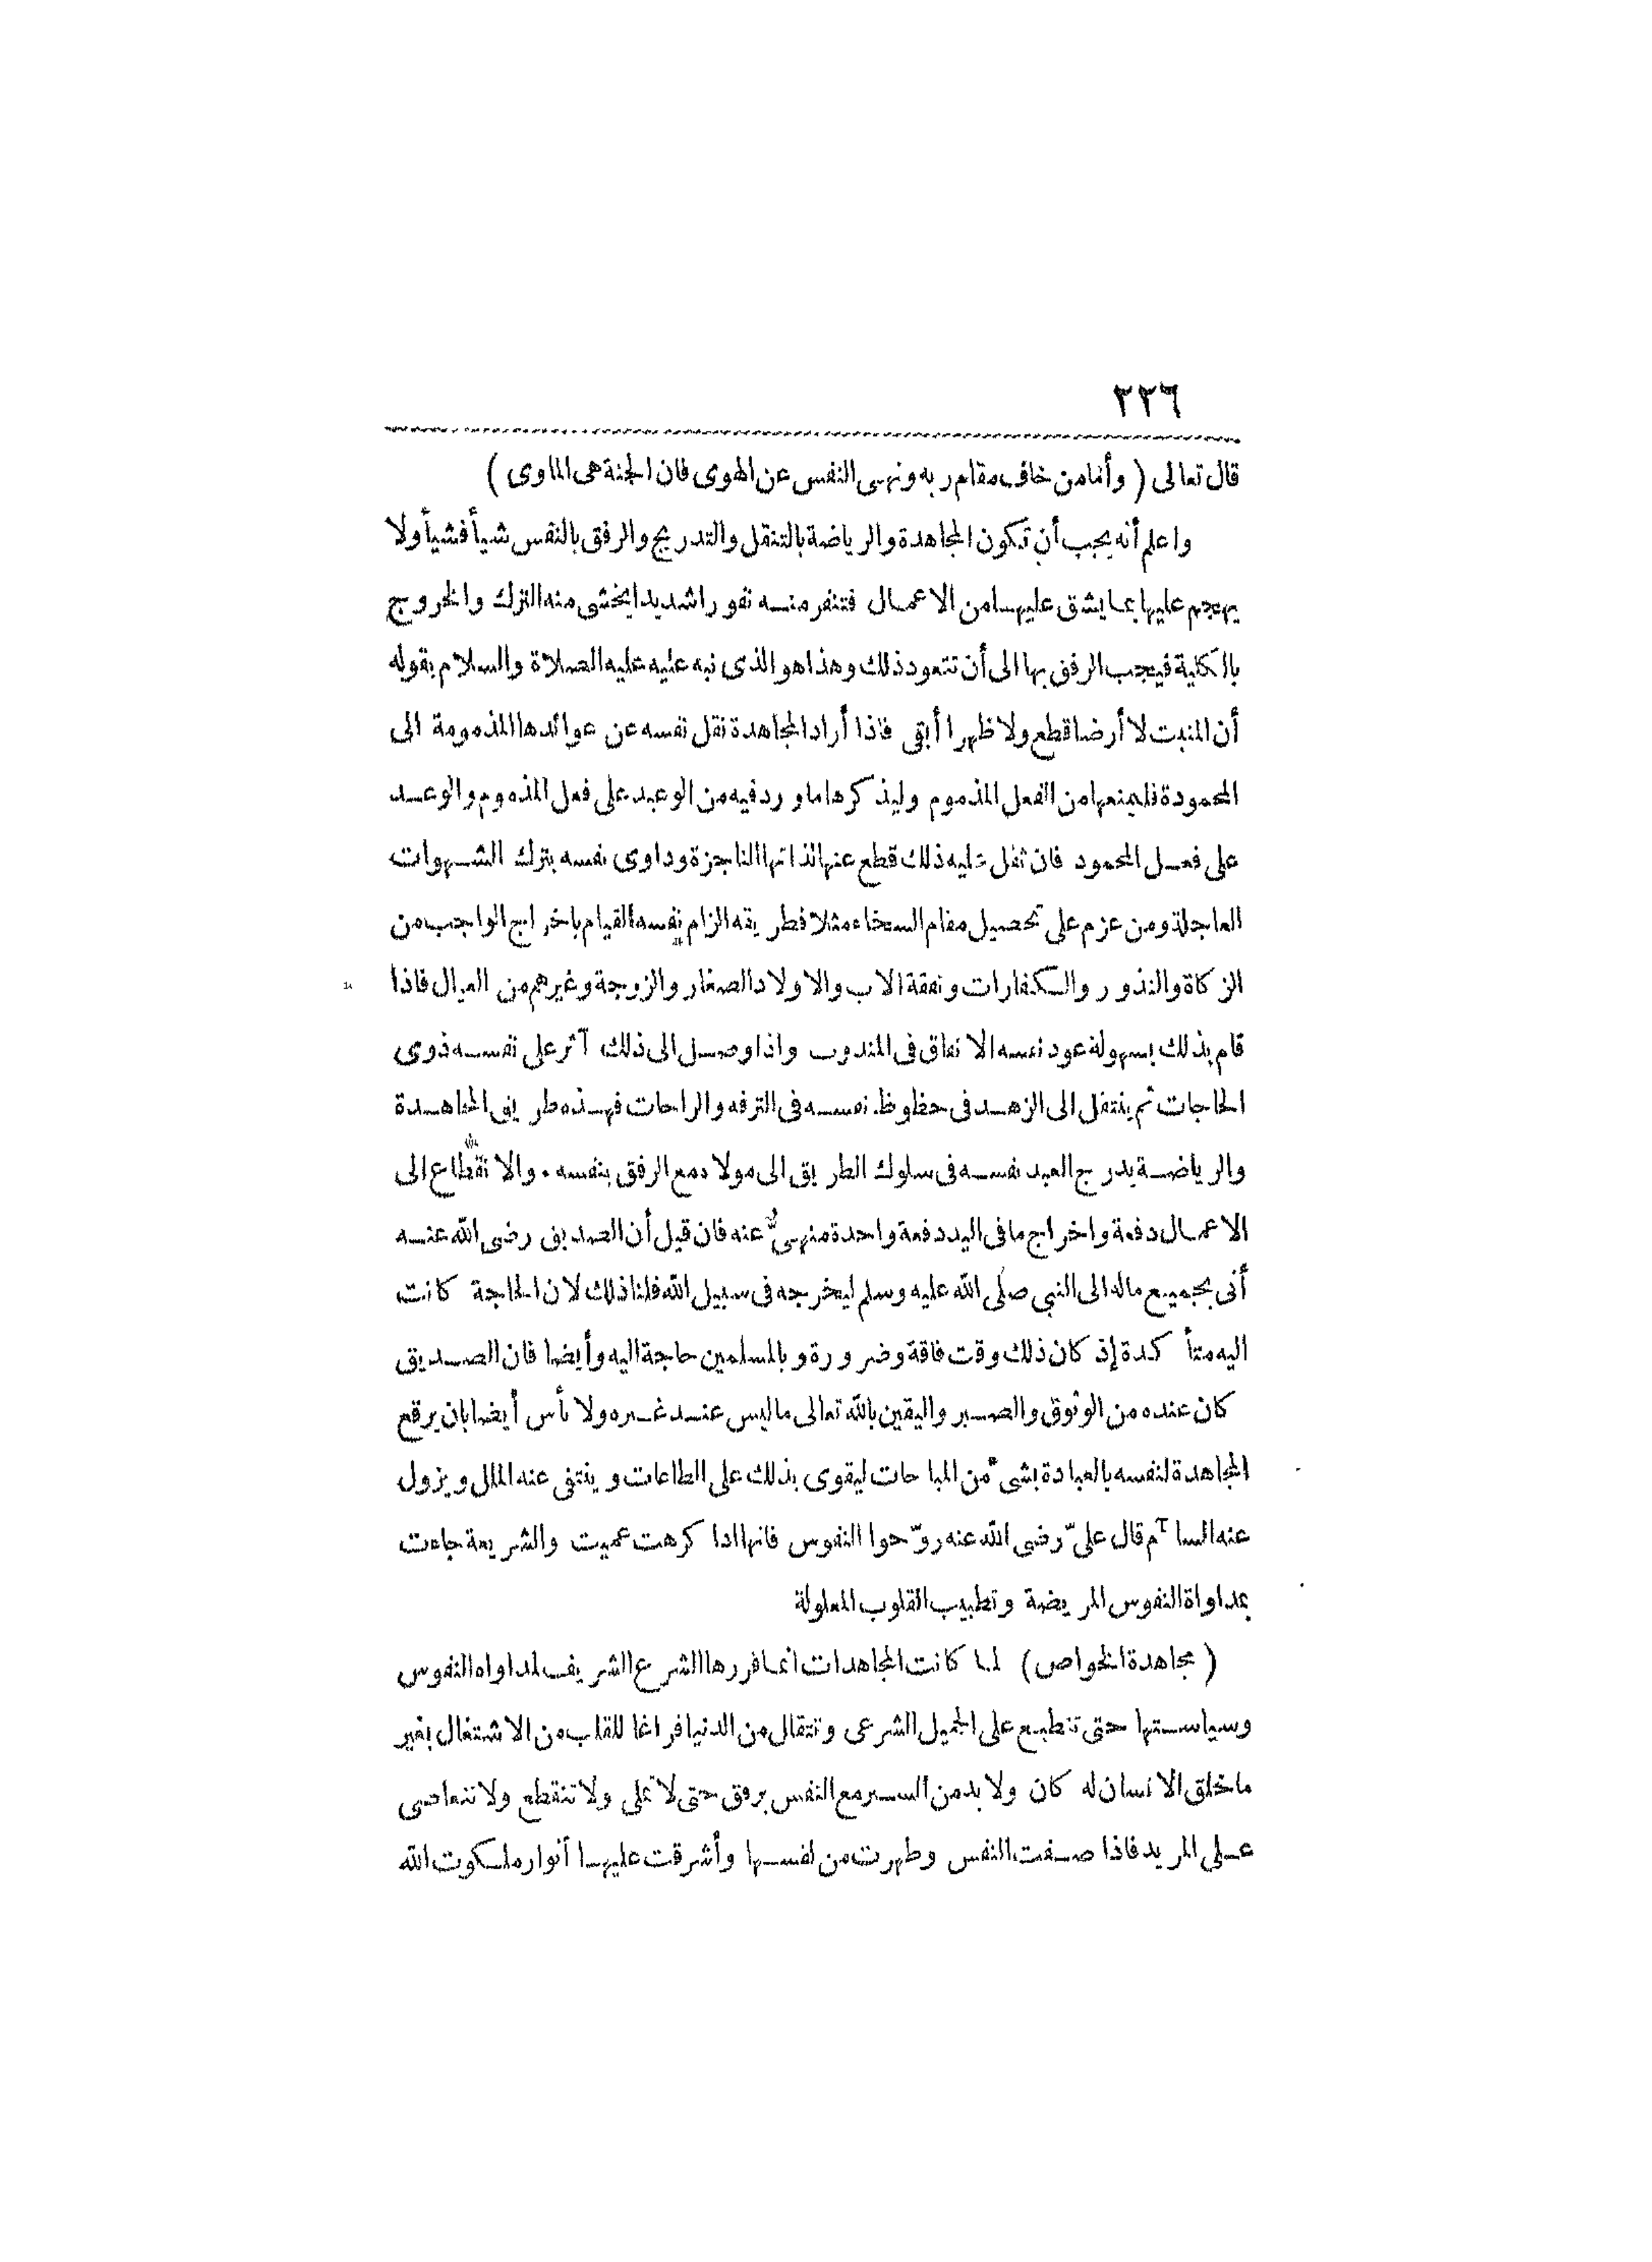 ٢٢٦
قال تعالى ( وأما من خاف مقام ربه ونهى النفس عن الهوى فان الجنة هى المأوى )
واعلم أنه يجب أن تكون المجاهدة والرياضة بالتنقل والتدريج والرفق بالنفس شيأ فشيأ ولا
يهجم عليها بما يشق عليها من الاعمال فتنفر منه نفورا شديدا يخشى منه الترك والخروج
بالكلية فيجب الرفق بها الى أن تتعود ذلك وهذا هو الذى نبه عليه عليه الصلاة والسلام بقوله
أن المنبت لا أرضا قطع ولا ظهرا أبقى فاذا أراد المجاهدة نقل نفسه عن عوائدها المذمومة الى
المحمودة فليمنعها من الفعل المذموم وليذكرها ما ورد فيه من الوعيد على فعل المذموم والوعد
على فعل المحمود فان ثقل عليه ذلك قطع عنها لذاتها الناجزة وداوى نفسه بترك الشهوات
العاجلة ومن عزم على تحصيل مقام السخاء مثلا فطريقه الزام نفسه القيام باخراج الواجب من
الزكاة والنذور والكفارات ونفقة الاب والاولاد الصغار والزوجة وغيرهم من العيال فاذا
قام بذلك بسهولة عود نفسه الانفاق فى المندوب واذا وصل الى ذلك آثر على نفسه ذوى
الحاجات ثم ينتقل الى الزهد فى حظوظ نفسه فى الترفه والراحات فهذه طريق المجاهدة
والرياضة يدرج العبد نفسه فى سلوك الطريق الى مولاه مع الرفق بنفسه . والانقطاع الى
الاعمال دفعة واخراج ما فى اليد دفعة واحدة منهىّ عنه فان قيل أن الصديق رضى الله عنه
أتى بجميع ماله الى النبي صلى الله عليه وسلم ليخرجه فى سبيل الله قلنا ذلك لان الحاجة كانت
اليه متأكدة إذ كان ذلك وقت فاقة وضرورة وبالمسلمين حاجة اليه وأيضا فان الصديق
كان عنده من الوثوق والصبر واليقين بالله تعالى ما ليس عند غيره ولا بأس أيضا بان يرقع
المجاهدة لنفسه بالعبادة بشئ من المباحات ليقوى بذلك على الطاعات وينتفى عنه الملل ويزول
عنه السآم قال علىّ رضى الله عنه روّحوا النفوس فانها اذا كرهت عميت والشريعة جاءت
بمداواة النفوس المريضة وتطبيب القلوب المعلولة
( مجاهدة الخواص ) لما كانت المجاهدات انما قررها الشرع الشريف لمداواه النفوس
وسياستها حتى تنطبع على الجميل الشرعى وتتقال من الدنيا فراغا للقلب من الاشتغال بغير
ما خلق الانسان له كان ولا بد من السير مع النفس برفق حتى لا تملى ولا تنقطع ولا تتعاصى
على المريد فاذا صفت النفس وطهرت من لقسها وأشرقت عليها أنوار ملكوت الله